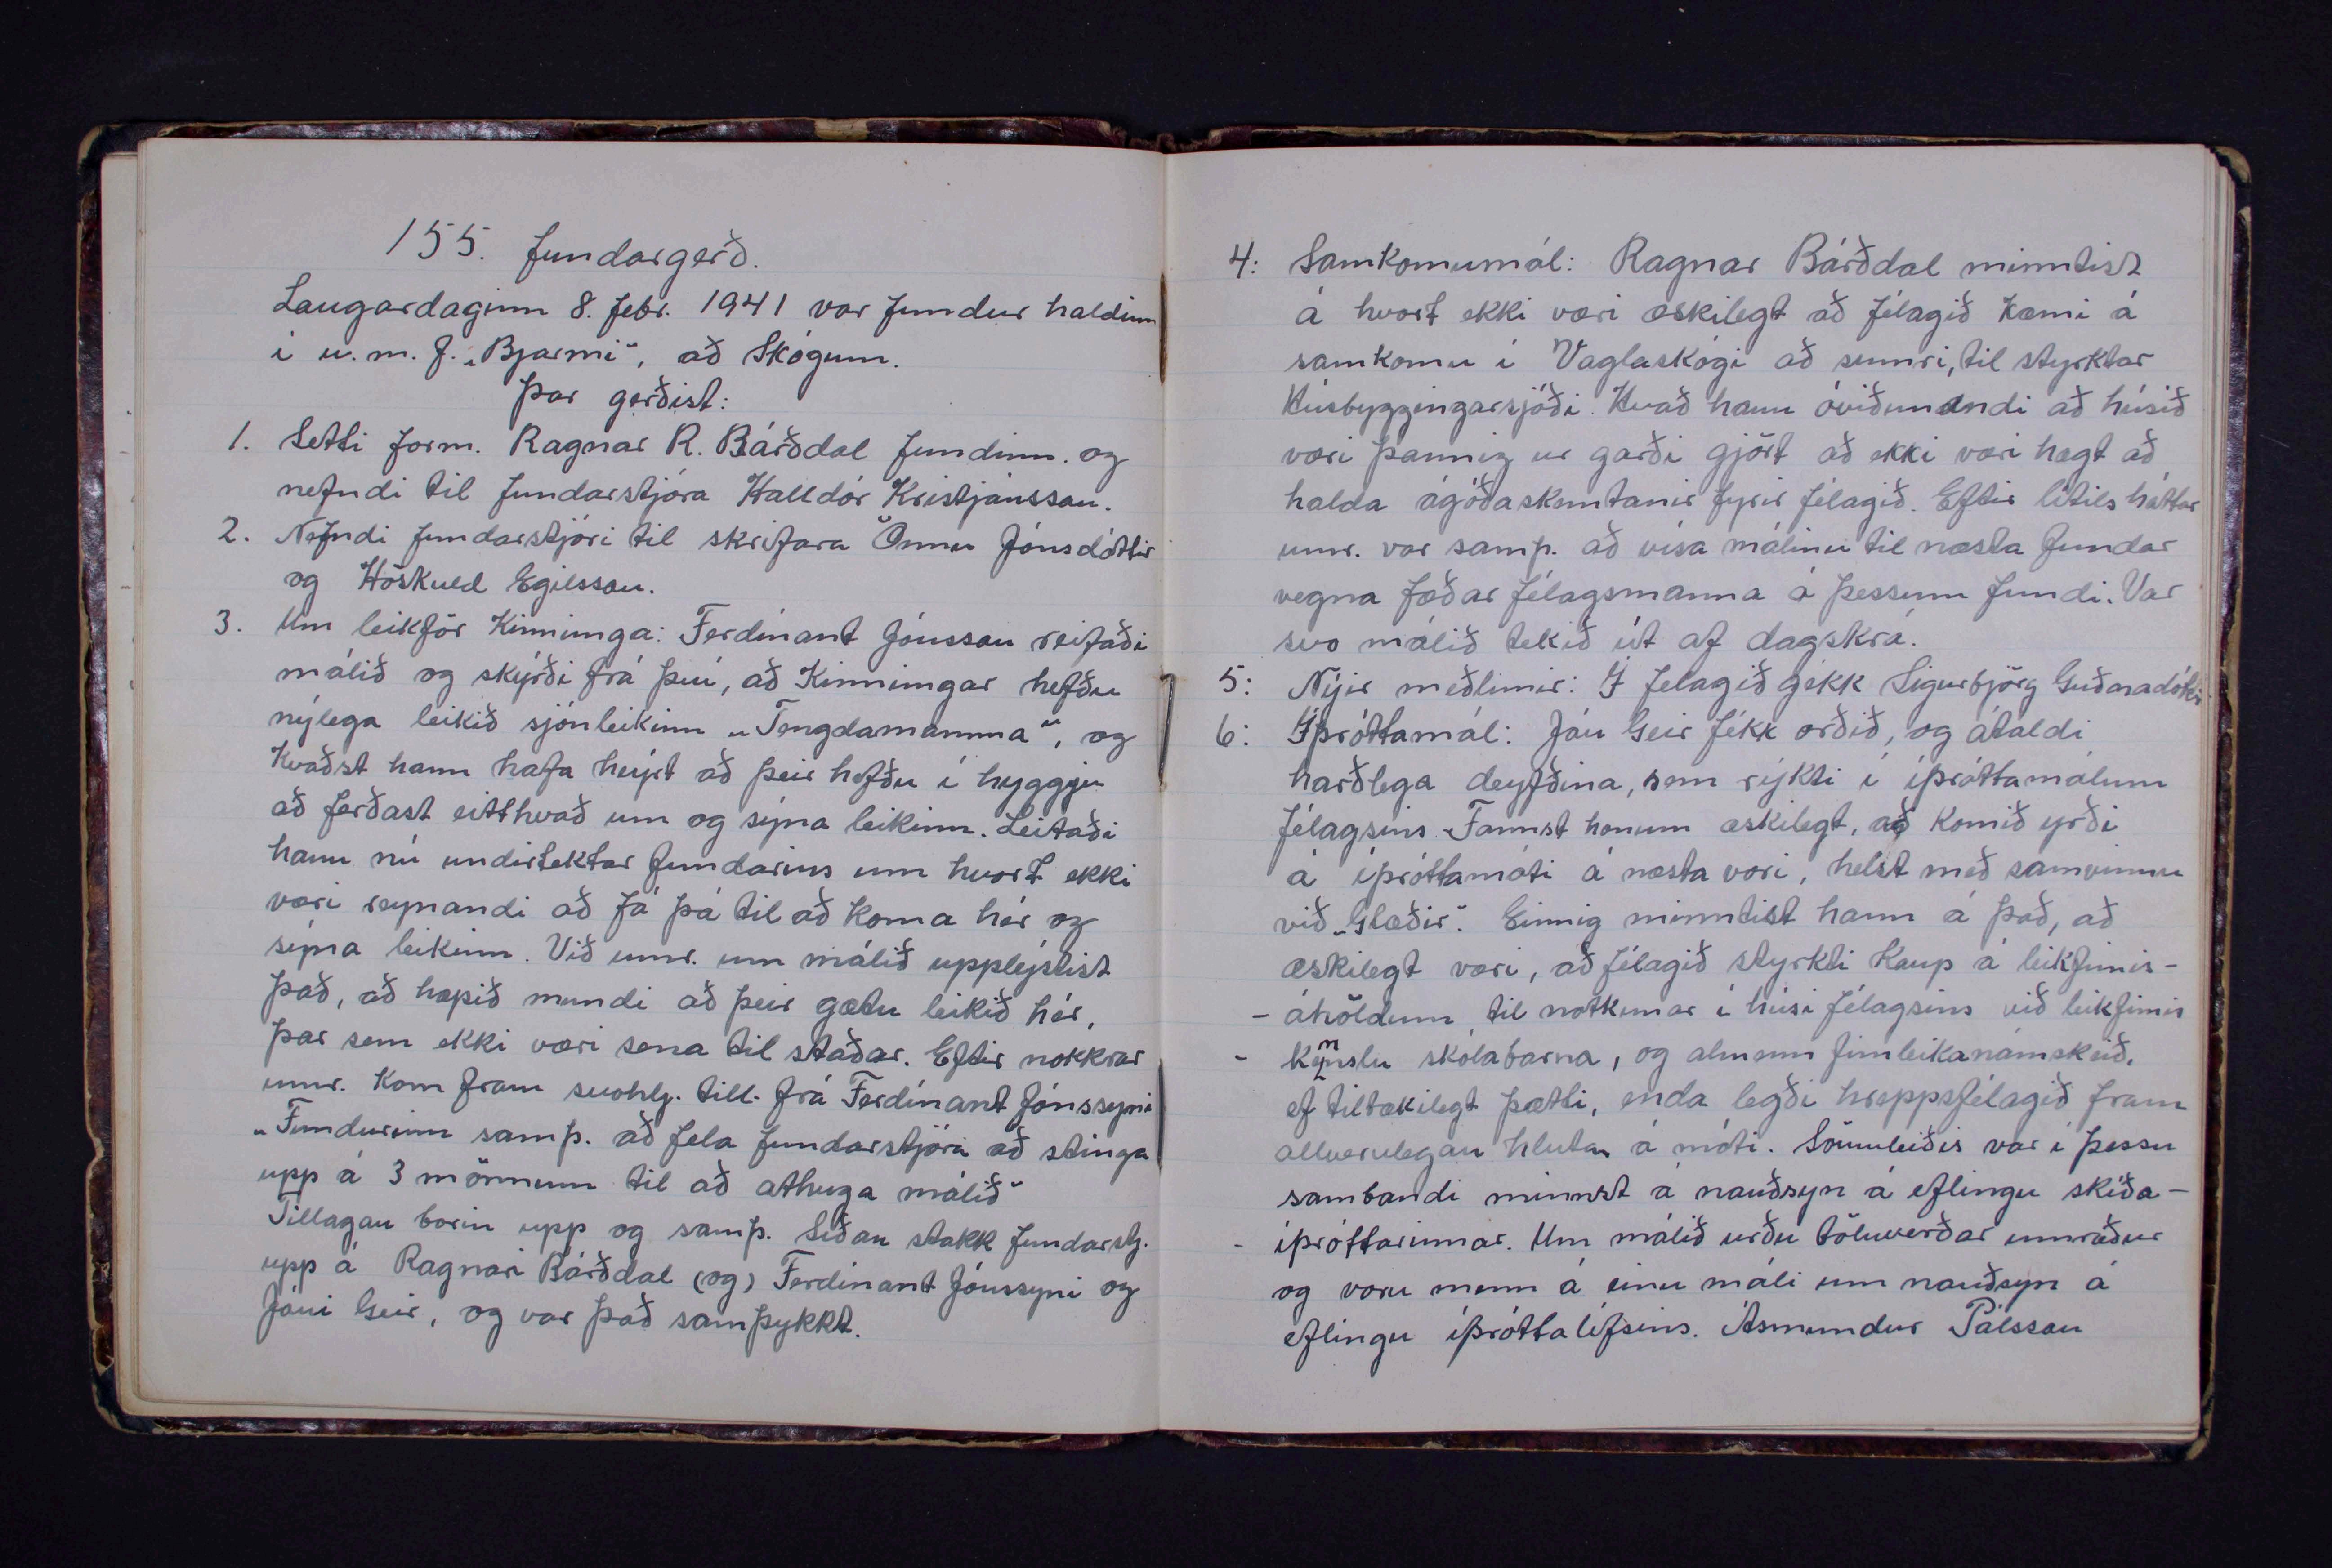 155. fundargerð.
Laugardaginn 8. febr. 1941 var fundur haldinn
í u.m.f. „Bjarmi", að Skógum.
Þar gerðist:
1. Setti form. Ragnar R. Bárðdal fundinn. og
nefndi til fundarstjóra Halldór Kristjánsson.
2. Nefndi fundarstjóri til skrifara Önnu Jónsdóttir
og Höskuld Egilsson.
3. Um leikför Kinninga: Ferdínant Jónsson reifaði
málið og skýrði frá því, að Kinningar hefðu
nýlega leikið sjónleikinn „Tengdamamma", og
kvaðst hann hafa heyrt að þeir hefðu í hyggju
að ferðast eitthvað um og sýna leikinn. Leitaði
hann nú undirtektar fundarins um hvort ekki
væri reynandi að fá þá til að koma hér og
sýna leikinn. Við umr. um málið upplýstist
það, að hæpið mundi að þeir gætu leikið hér,
þar sem ekki væri sena til staðar. Eftir nokkrar
umr. kom fram svohlj. till. frá Ferdínant Jónssyni
„Fundurinn samþ. að fela fundarstjóra að stinga
upp á 3 mönnum til að athuga málið"
Tillagan borin upp og samþ. Síðan stakk fundarstj.
upp á Ragnari Bárðdal (og) Ferdínant Jónssyni og
Jóni Geir, og var það samþykkt.
4: Samkomumál: Ragnar Bárðdal minntist
á hvort ekki væri æskilegt að félagið kæmi á
samkomu í Vaglaskógi að sumri, til styrktar
Húsbyggingarsjóði. Kvað hann óviðunandi að húsið
væri þannig ur garði gjört að ekki væri hægt að
halda ágóðaskemtanir fyrir félagið. Eftir lítils háttar
umr. var samþ. að vísa málinu til næsta fundar
vegna fæðar félagsmanna á þessum fundi. Var
svo málið tekið út af dagskrá.
5: Nýir meðlimir: Í felagið gekk Sigurbjörg Guðnadóttir
6: Íþróttamál: Jón Geir fékk orðið, og átaldi
harðlega deyfðina, sem ríkti í íþróttamálum
félagsins. Fannst honum æskilegt, að komið yrði
á íþróttamóti á næsta vori, helst með samvinnu
við „Glæðir". Einnig minntist hann á það, að
æskilegt væri, að félagið styrkti kaup á leikfimis-
- áhöldum til notkunar í húsi félagsins við leikfimis
- kennslu skólabarna, og almenn fimleikanámskeið,
ef tiltækilegt þætti, enda legði hreppsfélagið fram
allverulegan hluta á móti. Sömuleiðis var í þessu
sambandi minnst á nauðsyn á eflingu skíða-
- íþróttarinnar. Um málið urðu töluverðar umræður
og voru menn á einu máli um nauðsyn á
eflingu íþróttalífsins. Ásmundur Pálsson